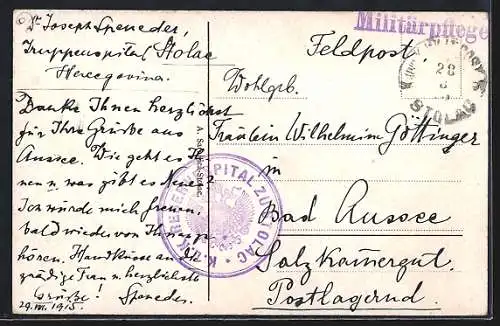 Dr. Joseph Speneder,
Truppenspital Stolac
Hercegovina.
Danke Ihnen herzlichst
für Ihre Grüße aus
Aussee. Wie geht es Ih-
nen u. was gibt es Neues?
Ich würde mich freuen,
bald wieder von Ihnen zu
hören. Handküsse an die
gnädige Frau u. herzlichste
Grüße! Speneder
29.VII.1915.
Militärpflege
Feldpost
28
STOLAC
Wohlgb.
Fräulein Wilhelmine Göttinger
in
Bad Aussee
Salzkammergut.
Postlagernd.
SPITAL ZU STOLAC